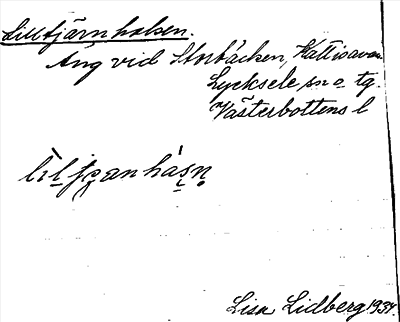 Lilltjärnholsen.
Äng vid Storbäcken, Kattisavan.
Lycksele sn o. tg.
Västerbottens l
Lisa Lidberg 1934.